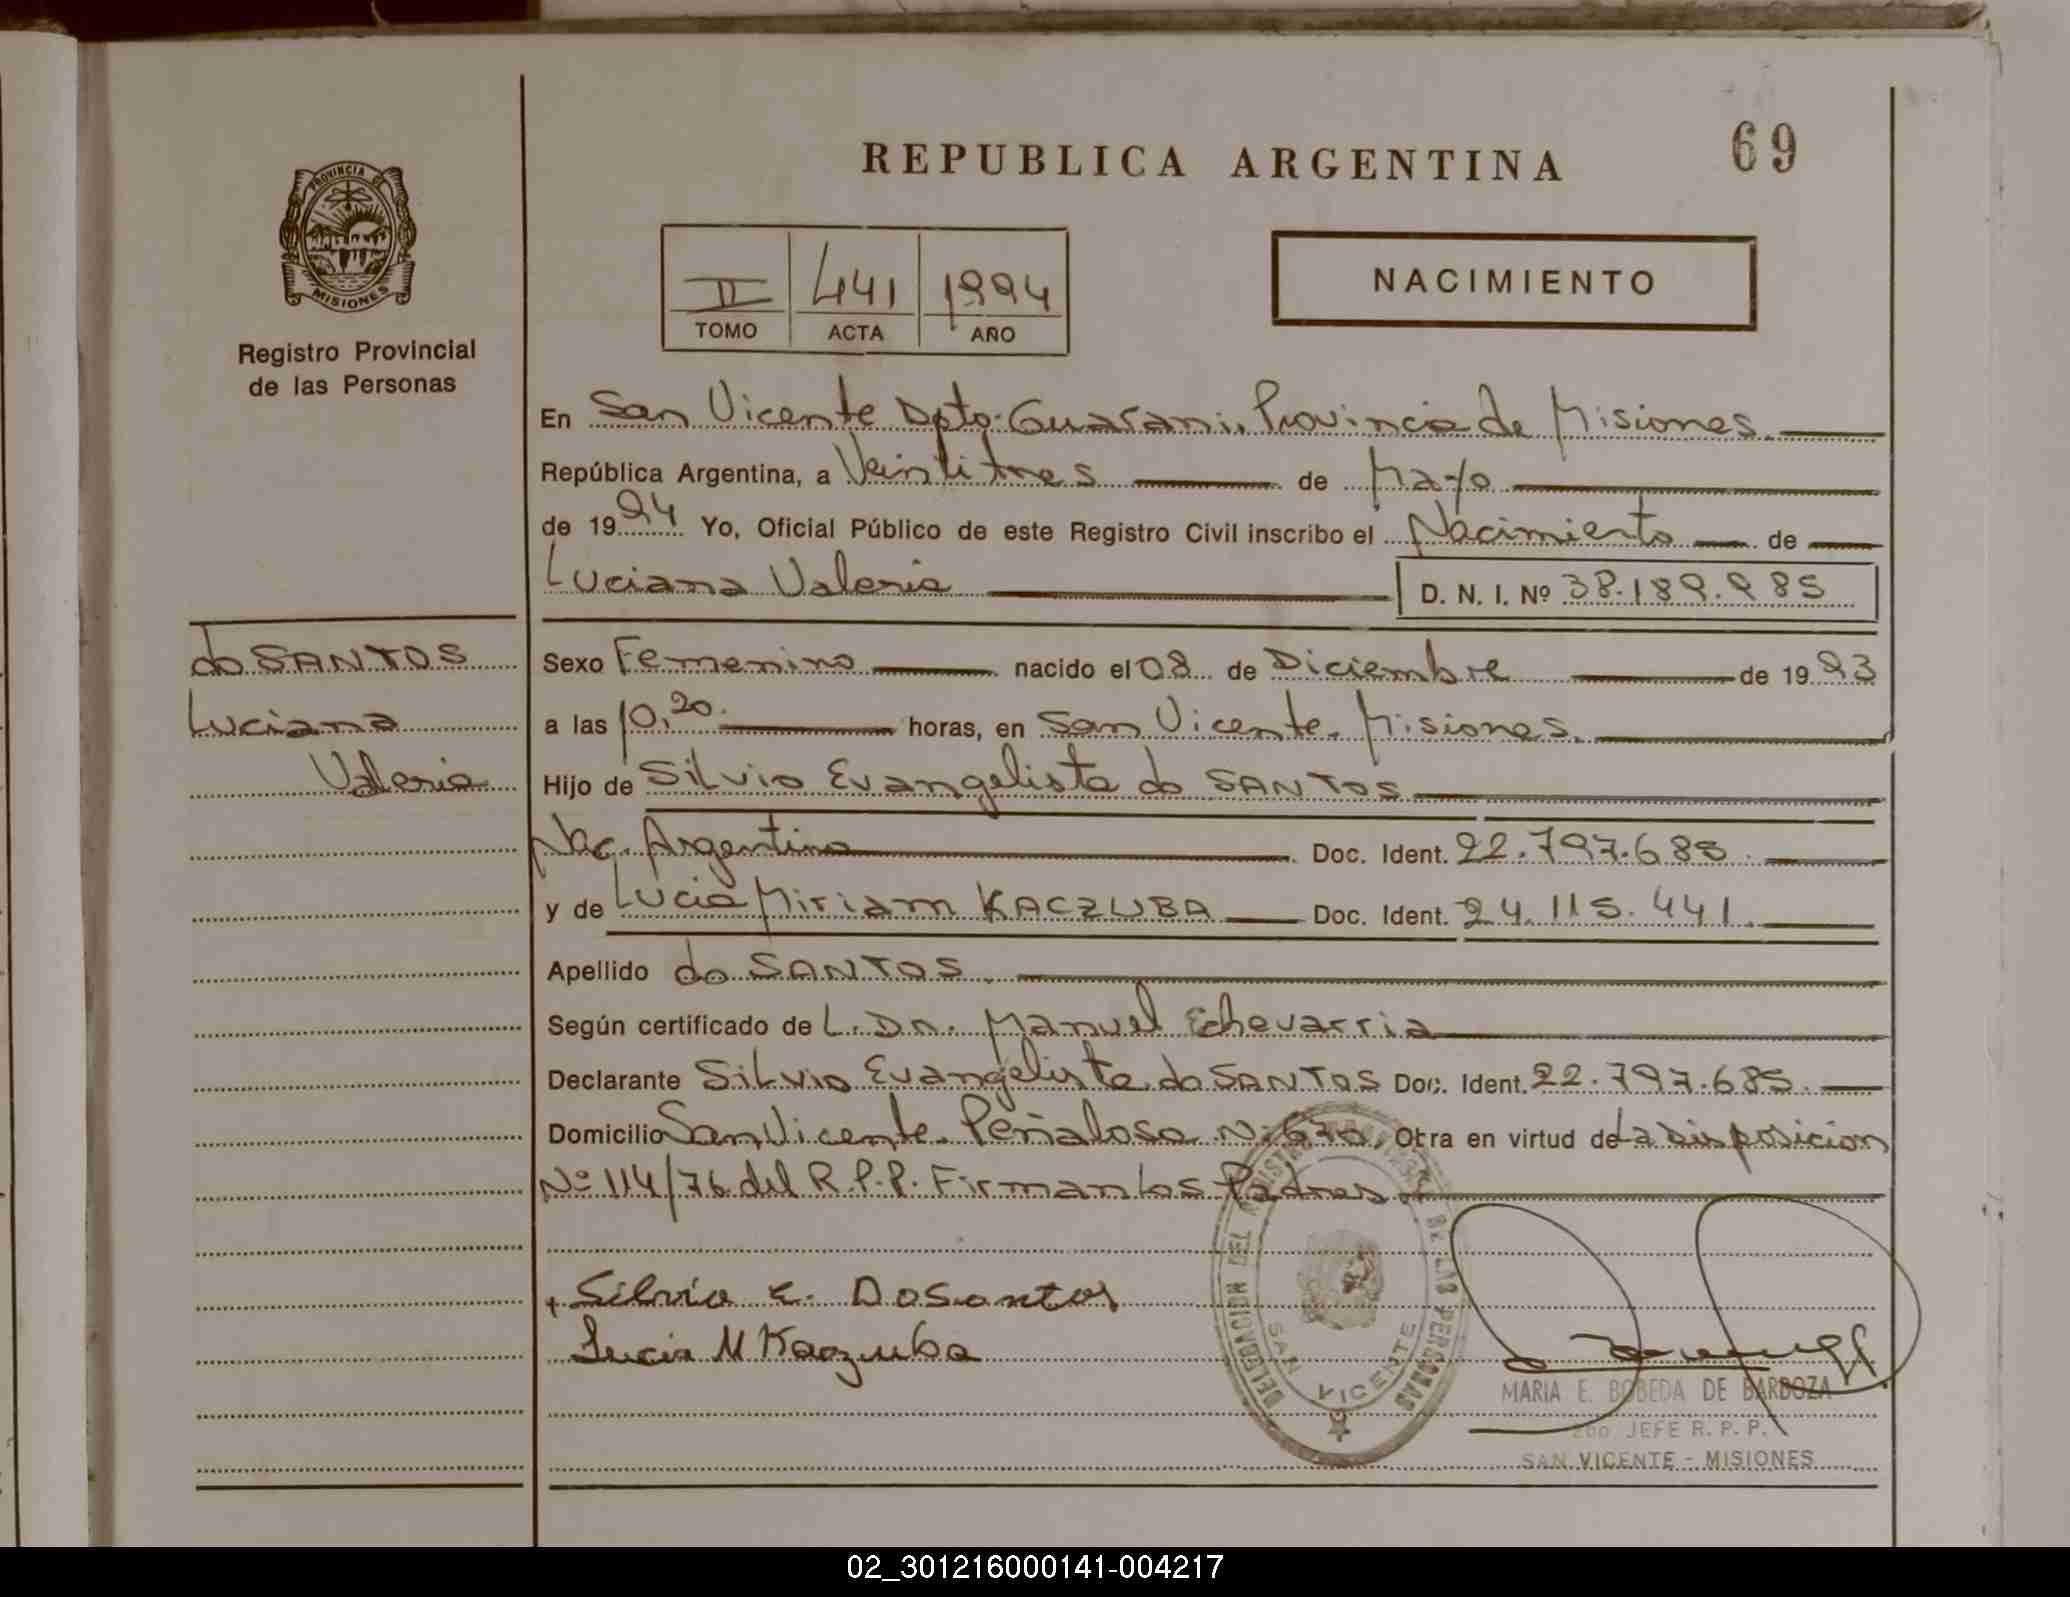 REPUBLICA ARGENTINA
69
PROVINCIA DE
MISIONES
Registro Provincial
de las Personas
II 441 1994
TOMO ACTA AÑO
NACIMIENTO
En San Vicente Dpto. Guarani, Provincia de Misiones.
República Argentina, a Veintitres de Mayo
de 1994 Yo, Oficial Público de este Registro Civil inscribo el Nacimiento de
Luciana Valeria D. N. I. Nº 38.189.985
do SANTOS
Luciana
Valeria
Sexo Femenino nacido el 08 de Diciembre de 1993
a las 10,20. horas, en San Vicente. Misiones.
Hijo de Silvio Evangelista do SANTOS
Nac. Argentino Doc. Ident. 22.797.685
y de Lucia Miriam KACZUBA Doc. Ident. 24.115.441.
Apellido do SANTOS.
Según certificado de L. Dr. Manuel Echevarria
Declarante Silvio Evangelista do SANTOS Doc. Ident. 22.797.685.
Domicilio San Vicente. Peñalosa Nº 670. Otra en virtud de La Disposicion
Nº 114/76 del R.P.P. Firman los Padres
Silvio E. DoSantos
Lucia M Kaczuba
DELEGACION DEL REGISTRO PROVINCIAL DE LAS PERSONAS
SAN VICENTE
MARIA E. BOBEDA DE BARBOZA
2do JEFE R. P. P.
SAN VICENTE - MISIONES
02_301216000141-004217